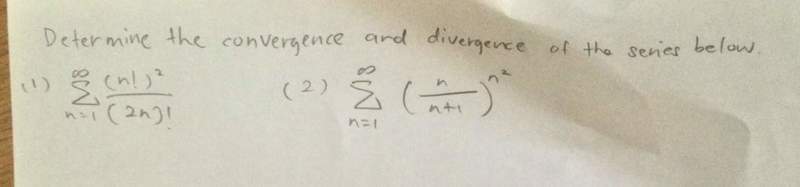 Determine the convergence and divergence of the series below.
(1) ∞ Σ n=1 (n!)² / (2n)! (2) ∞ Σ n=1 (n / n+1)^n²